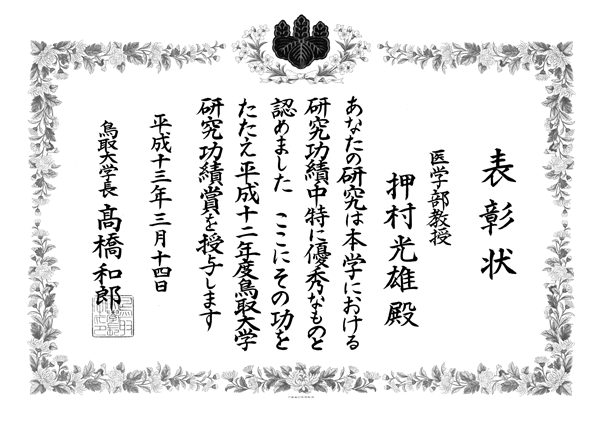 表彰状
医学部教授
押村光雄殿
あなたの研究は本学における
研究功績中特に優秀なものと
認めました ここにその功を
たたえ平成十二年度鳥取大学
研究功績賞を授与します
平成十三年三月十四日
鳥取大学長 髙橋和郎